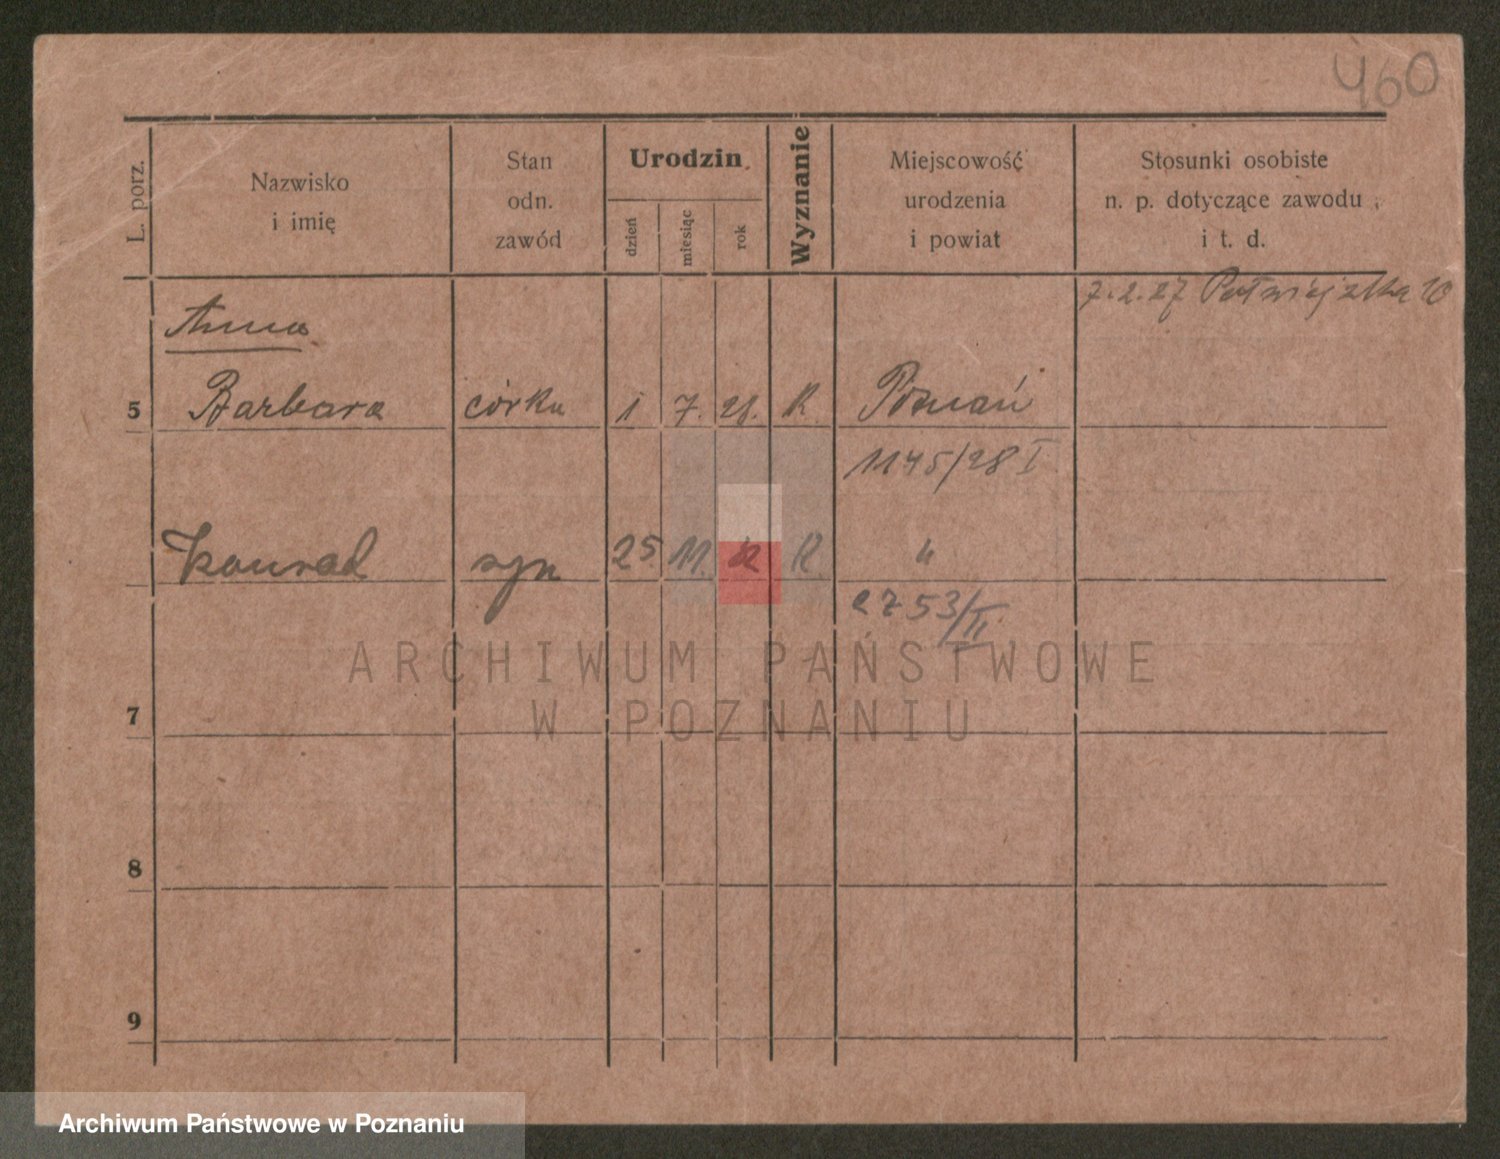 460
L. porz.
Nazwisko
i imię
Stan
odn.
zawód
Urodzin
dzień
miesiąc
rok
Wyznanie
Miejscowość
urodzenia
i powiat
Stosunki osobiste
n. p. dotyczące zawodu
i t. d.
7.2.27 Półwiejska 10
Anna
5 Barbara córka 1 7. 28. R. Poznań
1145/28 I
Konrad syn 25 11. R. "
2753/II
ARCHIWUM PAŃSTWOWE
W POZNANIU
7
8
9
Archiwum Państwowe w Poznaniu